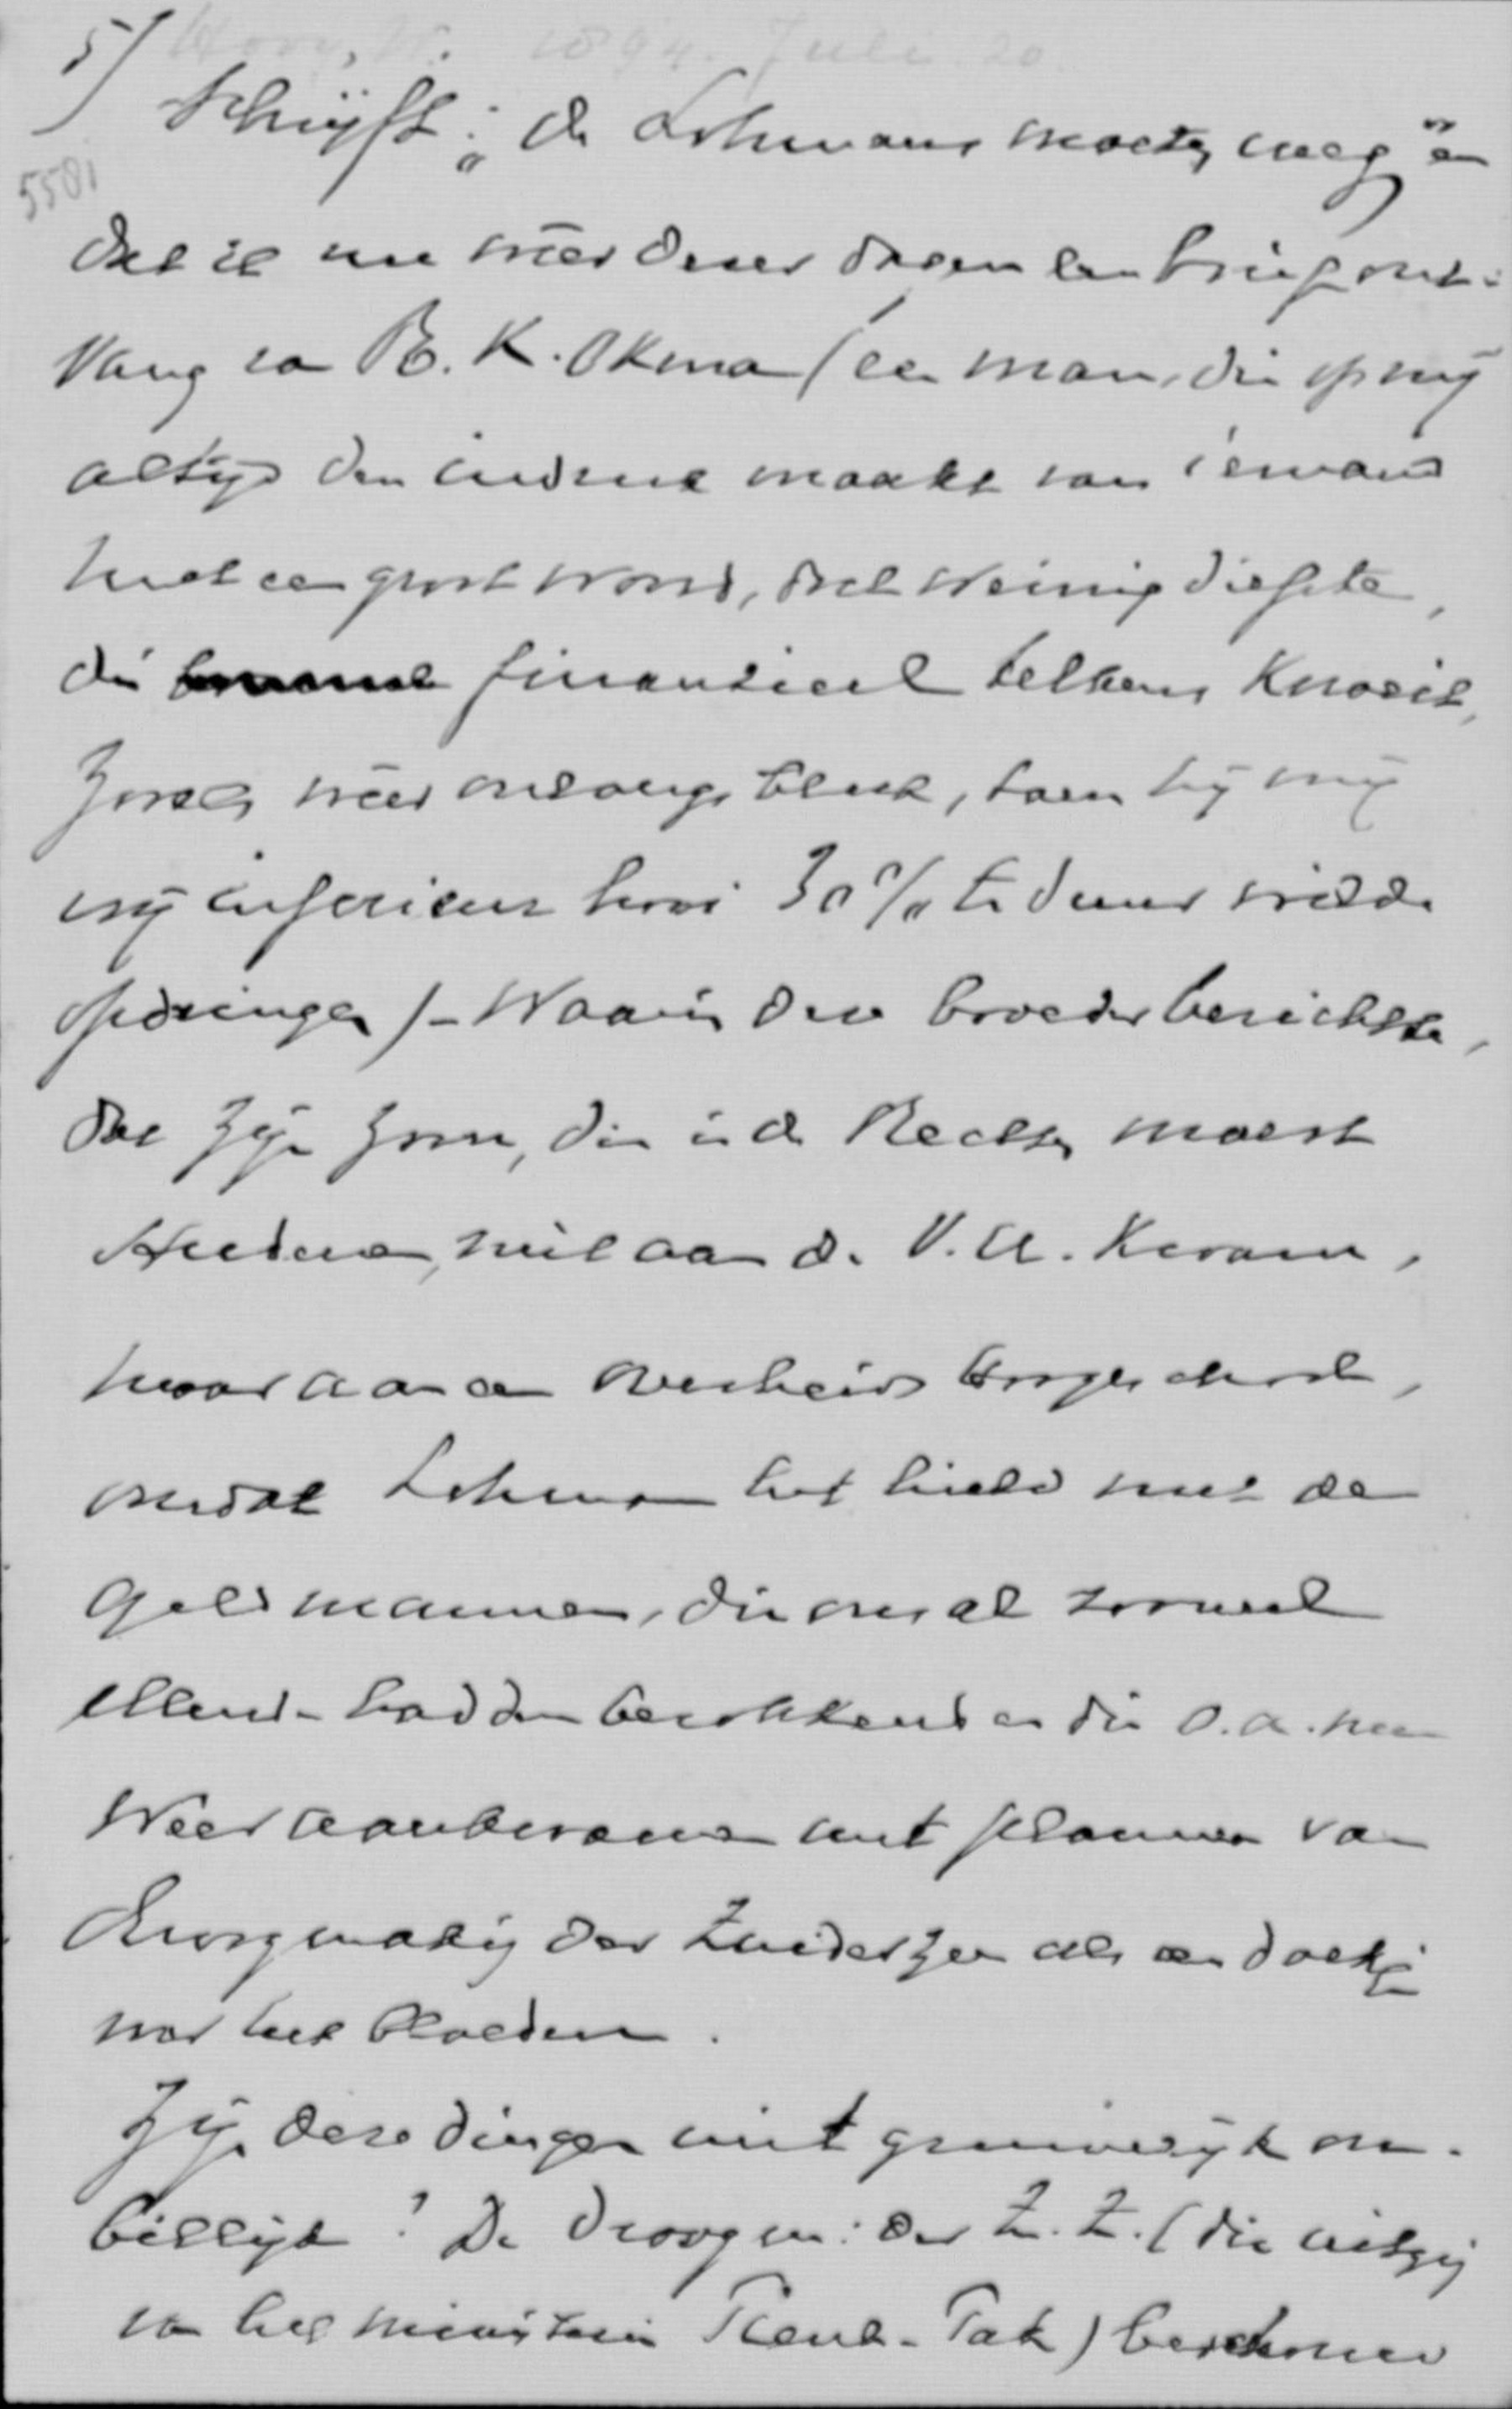 5/ 1894. Juli 20
schrijft: „de Lohmans moeten weg” en
5501
dat ik nu weer dezer dagen een brief ont-
vang van B. K. Okma (een man, die op mij
altijd den indruk maakt van iemand
met een groot woord, doch weinig diepte,
die finantieel telkens knoeit,
zooals weer onlangs bleek, toen hij mij
mij inferieur hooi 30% te duur wilde
opdringen) - Waarin deze broeder berichtte,
dat zijn zoon, die in de Rechten moest
studeeren, niet aan d. V.U. kwam,
omdat Lohman het hield met de
Geldmannen, die ons al zooveel
ellende hadden berokkend en die o.a. nu
weer aankwamen met plannen van
droogmaking der Zuiderzee als een doekje
voor het bloeden.
Zijn deze dingen niet gruwelijk on-
billijk? De droogm: der Z.Z. (die uitging
van het ministerie Tienh.-Tak) beschouw